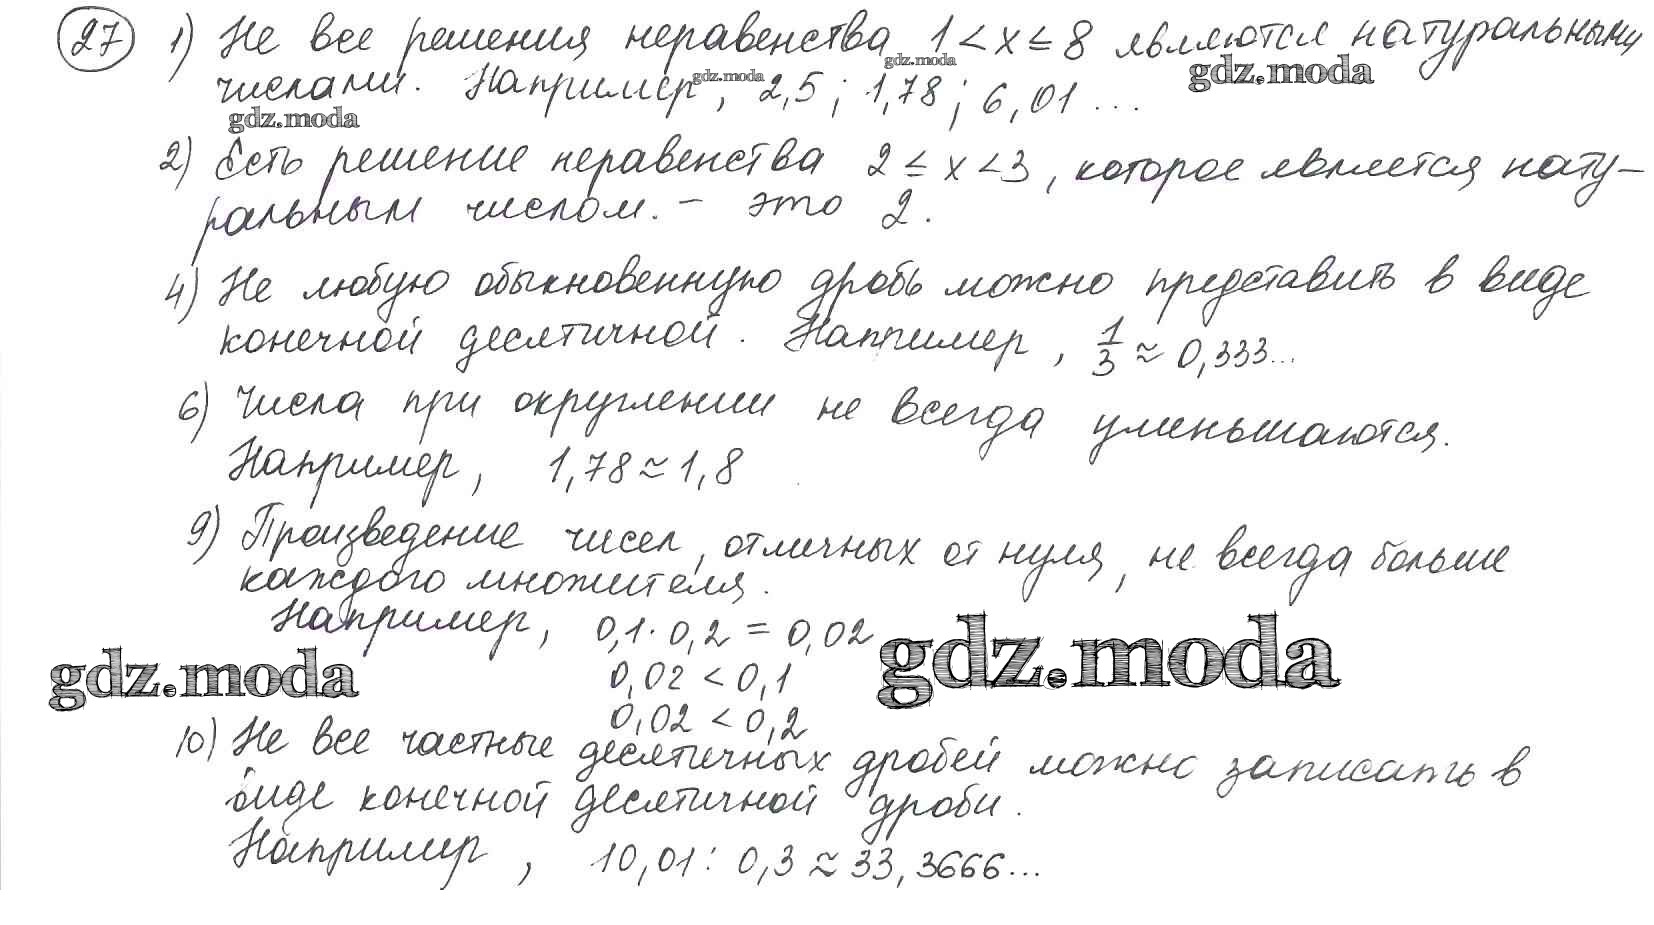 27 1) Не все решения неравенства 1 < x ≤ 8 являются натуральными
gdz.moda
gdz.moda
gdz.moda
числами. Например, 2,5; 1,78; 6,01...
gdz.moda
2) Есть решение неравенства 2 ≤ x < 3, которое является нату-
ральным числом. - это 2.
4) Не любую обыкновенную дробь можно представить в виде
конечной десятичной. Например, 1/3 ≈ 0,333...
6) Числа при округлении не всегда уменьшаются.
Например, 1,78 ≈ 1,8
9) Произведение чисел, отличных от нуля, не всегда больше
каждого множителя.
Например, 0,1 · 0,2 = 0,02
gdz.moda
gdz.moda
0,02 < 0,1
0,02 < 0,2
10) Не все частные десятичных дробей можно записать в
виде конечной десятичной дроби.
Например, 10,01 : 0,3 ≈ 33,3666...